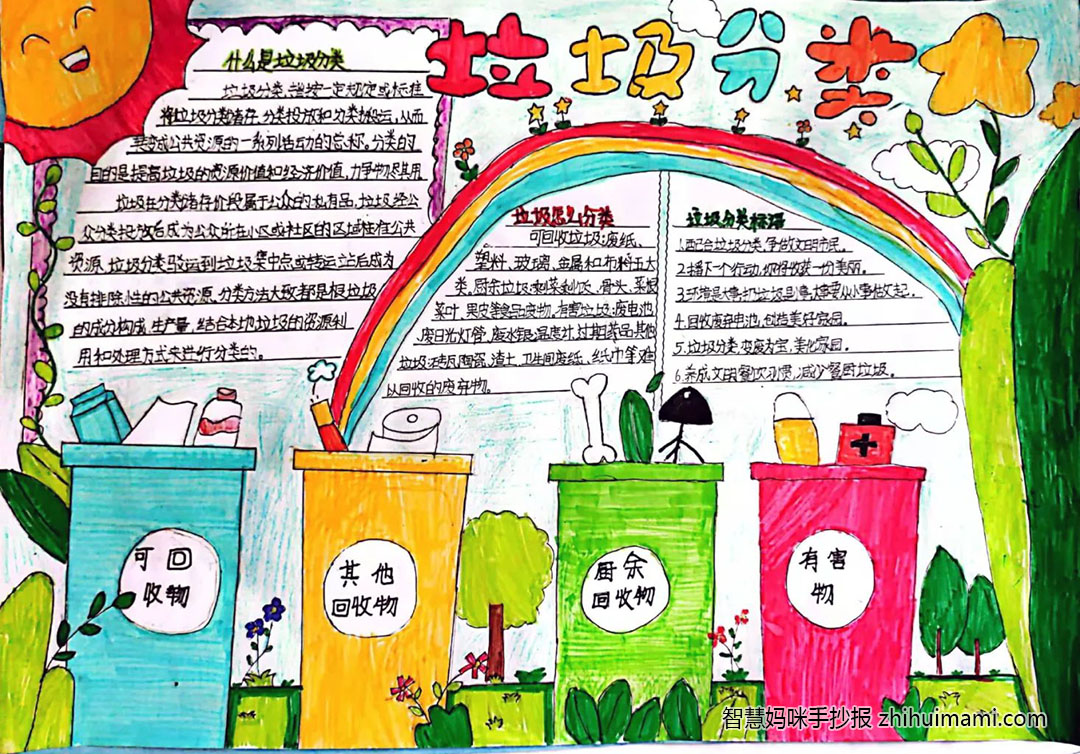 垃圾分类
什么是垃圾分类
垃圾分类,指按一定规定或标准
将垃圾分类储存、分类投放和分类搬运,从而
转变成公共资源的一系列活动的总称。分类的
目的是提高垃圾的资源价值和经济价值,力争物尽其用
垃圾在分类储存阶段属于公众的私有品,垃圾经公
众分类投放后成为公众所在小区或社区的区域性准公共
资源,垃圾分类驳运到垃圾集中点或转运站后成为
没有排除性的公共资源。分类方法大致都是根垃圾
的成分构成、生产量,结合本地垃圾的资源利
用和处理方式来进行分类的。
垃圾怎么分类
可回收垃圾:废纸、
塑料、玻璃、金属和布料五大
类。厨余垃圾:剩菜剩饭、骨头、菜根
菜叶、果皮等食品废物。有害垃圾:废电池
废日光灯管、废水银温度计、过期药品;其他
垃圾:砖瓦陶瓷、渣土、卫生间废纸、纸巾等难
以回收的废弃物。
垃圾分类标语
1.配合垃圾分类,争做文明市民。
2.播下一个行动,你将收获一份美丽。
3.环境是大事,扔垃圾是小事,大事要从小事做起。
4.回收废弃电池,创造美好家园。
5.垃圾分类,变废为宝,美化家园。
6.养成文明餐饮习惯,减少餐厨垃圾。
可回
收物
其他
回收物
厨余
回收物
有害
物
智慧妈咪手抄报 zhihuimami.com